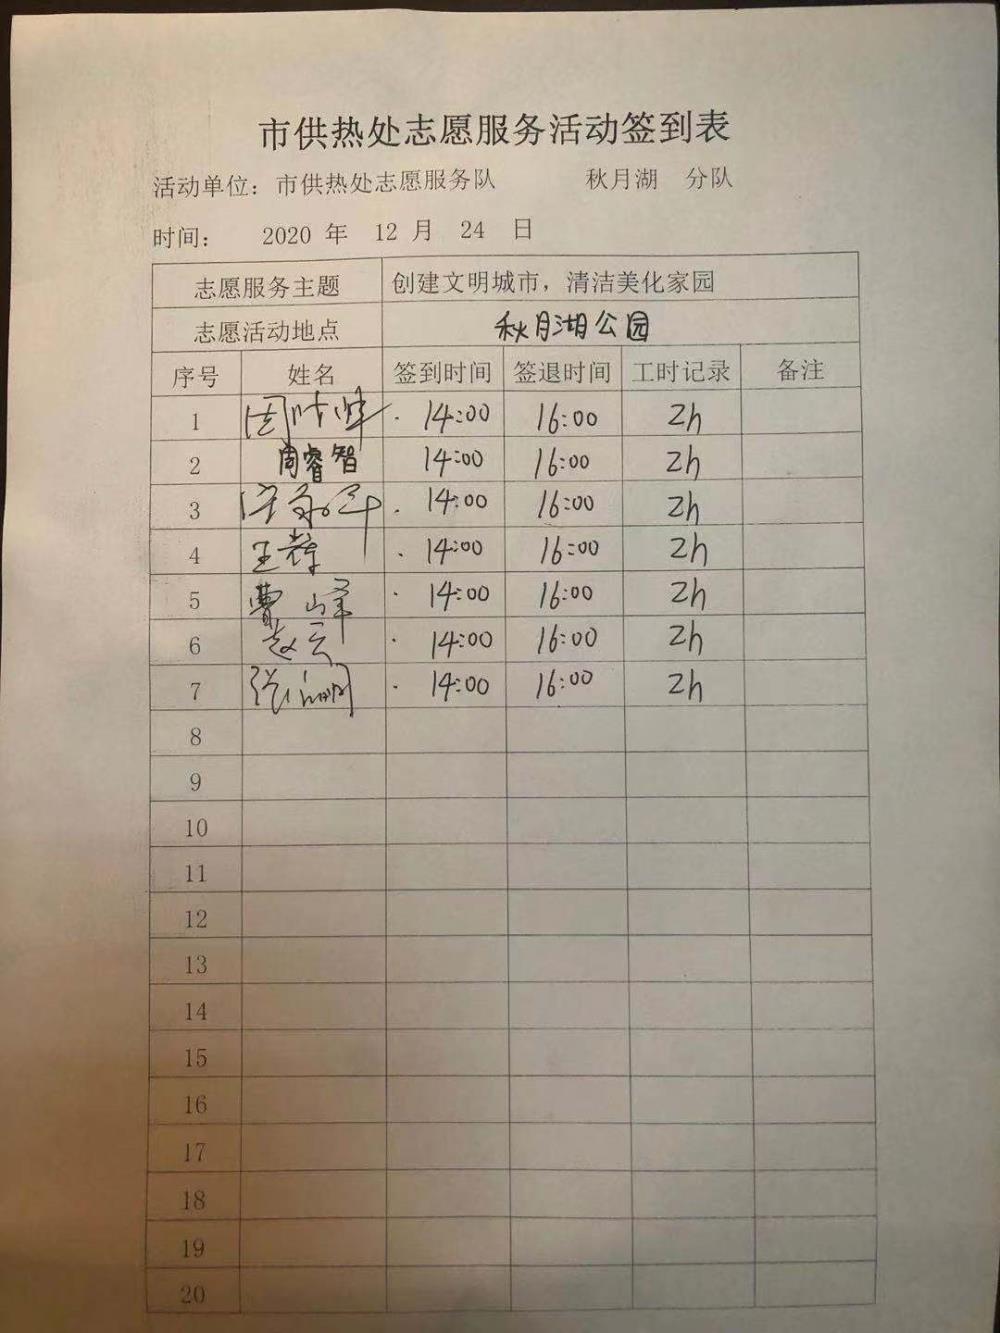 市供热处志愿服务活动签到表
活动单位：市供热处志愿服务队 秋月湖 分队
时间： 2020 年 12 月 24 日
志愿服务主题 创建文明城市，清洁美化家园
志愿活动地点 秋月湖公园
序号 姓名 签到时间 签退时间 工时记录 备注
1 14:00 16:00 2h
2 周睿智 14:00 16:00 2h
3 14:00 16:00 2h
4 14:00 16:00 2h
5 曹峰 14:00 16:00 2h
6 赵云 14:00 16:00 2h
7 14:00 16:00 2h
8
9
10
11
12
13
14
15
16
17
18
19
20